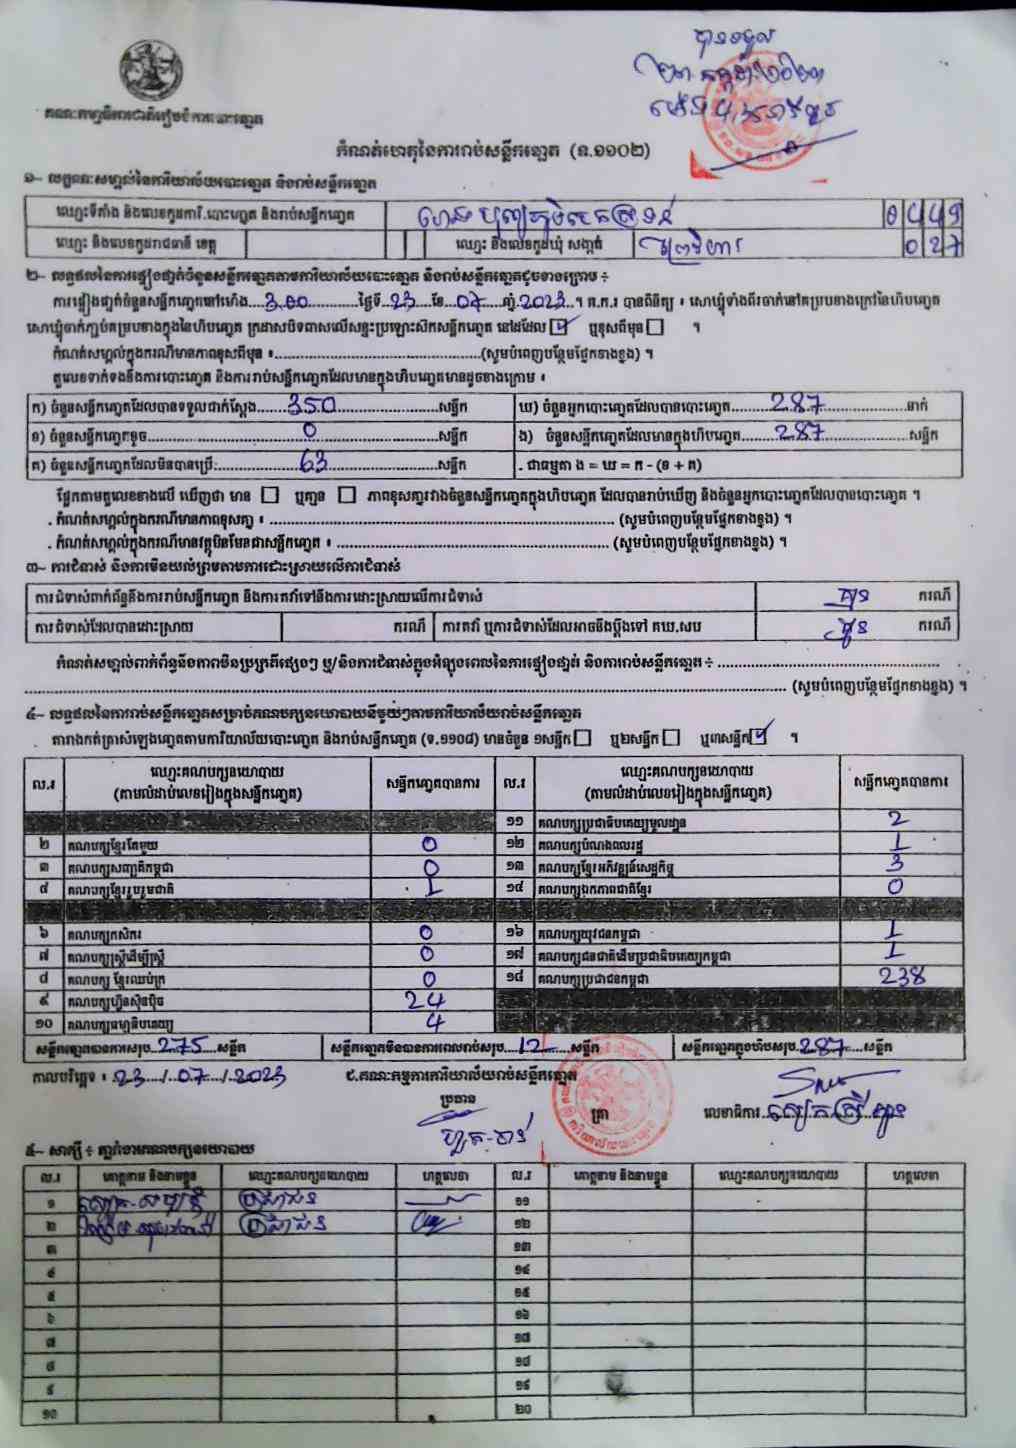 បានទទួល
គណៈកម្មាធិការជាតិរៀបចំការបោះឆ្នោត
កំណត់ហេតុនៃការរាប់សន្លឹកឆ្នោត (ទ.១១០២)
១- លក្ខណៈសម្គាល់នៃការិយាល័យបោះឆ្នោត និងរាប់សន្លឹកឆ្នោត
ឈ្មោះទីតាំង និងលេខកូដការិ.បោះឆ្នោត និងរាប់សន្លឹកឆ្នោត 0449
ឈ្មោះ និងលេខកូដរាជធានី ខេត្ត ឈ្មោះ និងលេខកូដឃុំ សង្កាត់ ព្រះវិហារ 027
២- លទ្ធផលនៃការផ្ទៀងផ្ទាត់ចំនួនសន្លឹកឆ្នោតតាមការិយាល័យបោះឆ្នោត និងរាប់សន្លឹកឆ្នោតដូចខាងក្រោម ៖
ការផ្ទៀងផ្ទាត់ចំនួនសន្លឹកឆ្នោតនៅម៉ោង...3,00...ថ្ងៃទី.23 ខែ.07 ឆ្នាំ.2023 ។ គ.ក.រ បានពិនិត្យ ៖ សោឃ្លុំទាំងពីរចាក់នៅគម្របខាងក្រៅនៃហិបឆ្នោត
សោឃ្លុំចាក់ភ្ជាប់គម្របខាងក្នុងនៃហិបឆ្នោត ក្រដាសបិទពាសលើសន្ទះប្រឡោះសឹកសន្លឹកឆ្នោត នៅដដែល ☑ ឬខុសពីមុន ☐ ។
កំណត់សម្គាល់ក្នុងករណីមានភាពខុសពីមុន ៖......(សូមបំពេញបន្ថែមផ្នែកខាងខ្នង) ។
តួលេខទាក់ទងនឹងការបោះឆ្នោត និងការរាប់សន្លឹកឆ្នោតដែលមានក្នុងហិបឆ្នោតមានដូចខាងក្រោម ៖
ក) ចំនួនសន្លឹកឆ្នោតដែលបានទទួលជាក់ស្តែង...350...សន្លឹក ឃ) ចំនួនអ្នកបោះឆ្នោតដែលបានបោះឆ្នោត...287...នាក់
ខ) ចំនួនសន្លឹកឆ្នោតខូច...0...សន្លឹក ង) ចំនួនសន្លឹកឆ្នោតដែលមានក្នុងហិបឆ្នោត...287...សន្លឹក
គ) ចំនួនសន្លឹកឆ្នោតដែលមិនបានប្រើ...63...សន្លឹក . ជាធម្មតា ង = ឃ = ក - (ខ + គ)
ផ្អែកតាមតួលេខខាងលើ ឃើញថា មាន ☐ ឬគ្មាន ☐ ភាពខុសគ្នារវាងចំនួនសន្លឹកឆ្នោតក្នុងហិបឆ្នោត ដែលបានរាប់ឃើញ និងចំនួនអ្នកបោះឆ្នោតដែលបានបោះឆ្នោត ។
. កំណត់សម្គាល់ក្នុងករណីមានភាពខុសគ្នា ៖ ...... (សូមបំពេញបន្ថែមផ្នែកខាងខ្នង) ។
. កំណត់សម្គាល់ក្នុងករណីមានវត្ថុមិនមែនជាសន្លឹកឆ្នោត ៖ ...... (សូមបំពេញបន្ថែមផ្នែកខាងខ្នង) ។
៣- ការជំទាស់ និងការមិនយល់ព្រមតាមការដោះស្រាយលើការជំទាស់
ការជំទាស់ពាក់ព័ន្ធនឹងការរាប់សន្លឹកឆ្នោត និងការតវ៉ាទៅនឹងការដោះស្រាយលើការជំទាស់ គ្មាន ករណី
ការជំទាស់ដែលបានដោះស្រាយ ករណី ការតវ៉ា ឬការជំទាស់ដែលអាចនឹងប្តឹងទៅ គឃ.សប គ្មាន ករណី
កំណត់សម្គាល់ពាក់ព័ន្ធនឹងភាពមិនប្រក្រតីផ្សេងៗ ឬ/និងការជំទាស់ក្នុងអំឡុងពេលនៃការផ្ទៀងផ្ទាត់ និងការរាប់សន្លឹកឆ្នោត ៖ ......
...... (សូមបំពេញបន្ថែមផ្នែកខាងខ្នង) ។
៤- លទ្ធផលនៃការរាប់សន្លឹកឆ្នោតសម្រាប់គណបក្សនយោបាយនីមួយៗតាមការិយាល័យរាប់សន្លឹកឆ្នោត
តារាងកត់ត្រាសំឡេងឆ្នោតតាមការិយាល័យបោះឆ្នោត និងរាប់សន្លឹកឆ្នោត (ទ.១១០៨) មានចំនួន ១សន្លឹក ☐ ឬ២សន្លឹក ☐ ឬ៣សន្លឹក ☑ ។
ល.រ ឈ្មោះគណបក្សនយោបាយ (តាមលំដាប់លេខរៀងក្នុងសន្លឹកឆ្នោត) សន្លឹកឆ្នោតបានការ ល.រ ឈ្មោះគណបក្សនយោបាយ (តាមលំដាប់លេខរៀងក្នុងសន្លឹកឆ្នោត) សន្លឹកឆ្នោតបានការ
១១ គណបក្សប្រជាធិបតេយ្យមូលដ្ឋាន 2
២ គណបក្សខ្មែរតែមួយ 0 ១២ គណបក្សបំណងពលរដ្ឋ 1
៣ គណបក្សសញ្ជាតិកម្ពុជា 0 ១៣ គណបក្សខ្មែរអភិវឌ្ឍន៍សេដ្ឋកិច្ច 3
៤ គណបក្សខ្មែររួបរួមជាតិ 1 ១៤ គណបក្សឯកភាពជាតិខ្មែរ 0
៦ គណបក្សកសិករ 0 ១៦ គណបក្សយុវជនកម្ពុជា 1
៧ គណបក្សស្ត្រីដើម្បីស្ត្រី 0 ១៧ គណបក្សជនជាតិដើមប្រជាធិបតេយ្យកម្ពុជា 1
៨ គណបក្ស ខ្មែរឈប់ក្រ 0 ១៨ គណបក្សប្រជាជនកម្ពុជា 238
៩ គណបក្សហ៊្វុនស៊ិនប៉ិច 24
១០ គណបក្សធម្មាធិបតេយ្យ 4
សន្លឹកឆ្នោតបានការសរុប...275...សន្លឹក សន្លឹកឆ្នោតមិនបានការពេលរាប់សរុប...12...សន្លឹក សន្លឹកឆ្នោតក្នុងហិបសរុប..287...សន្លឹក
កាលបរិច្ឆេទ ៖ 23/07/2023 ជ.គណៈកម្មការការិយាល័យរាប់សន្លឹកឆ្នោត
ប្រធាន ត្រា លេខាធិការ
៥- សាក្សី ៖ ភ្នាក់ងារគណបក្សនយោបាយ
ល.រ គោត្តនាម និងនាមខ្លួន ឈ្មោះគណបក្សនយោបាយ ហត្ថលេខា ល.រ គោត្តនាម និងនាមខ្លួន ឈ្មោះគណបក្សនយោបាយ ហត្ថលេខា
១ ប្រជាជន ១១
២ ប្រជាជន ១២
៣ ១៣
៤ ១៤
៥ ១៥
៦ ១៦
៧ ១៧
៨ ១៨
៩ ១៩
១០ ២០